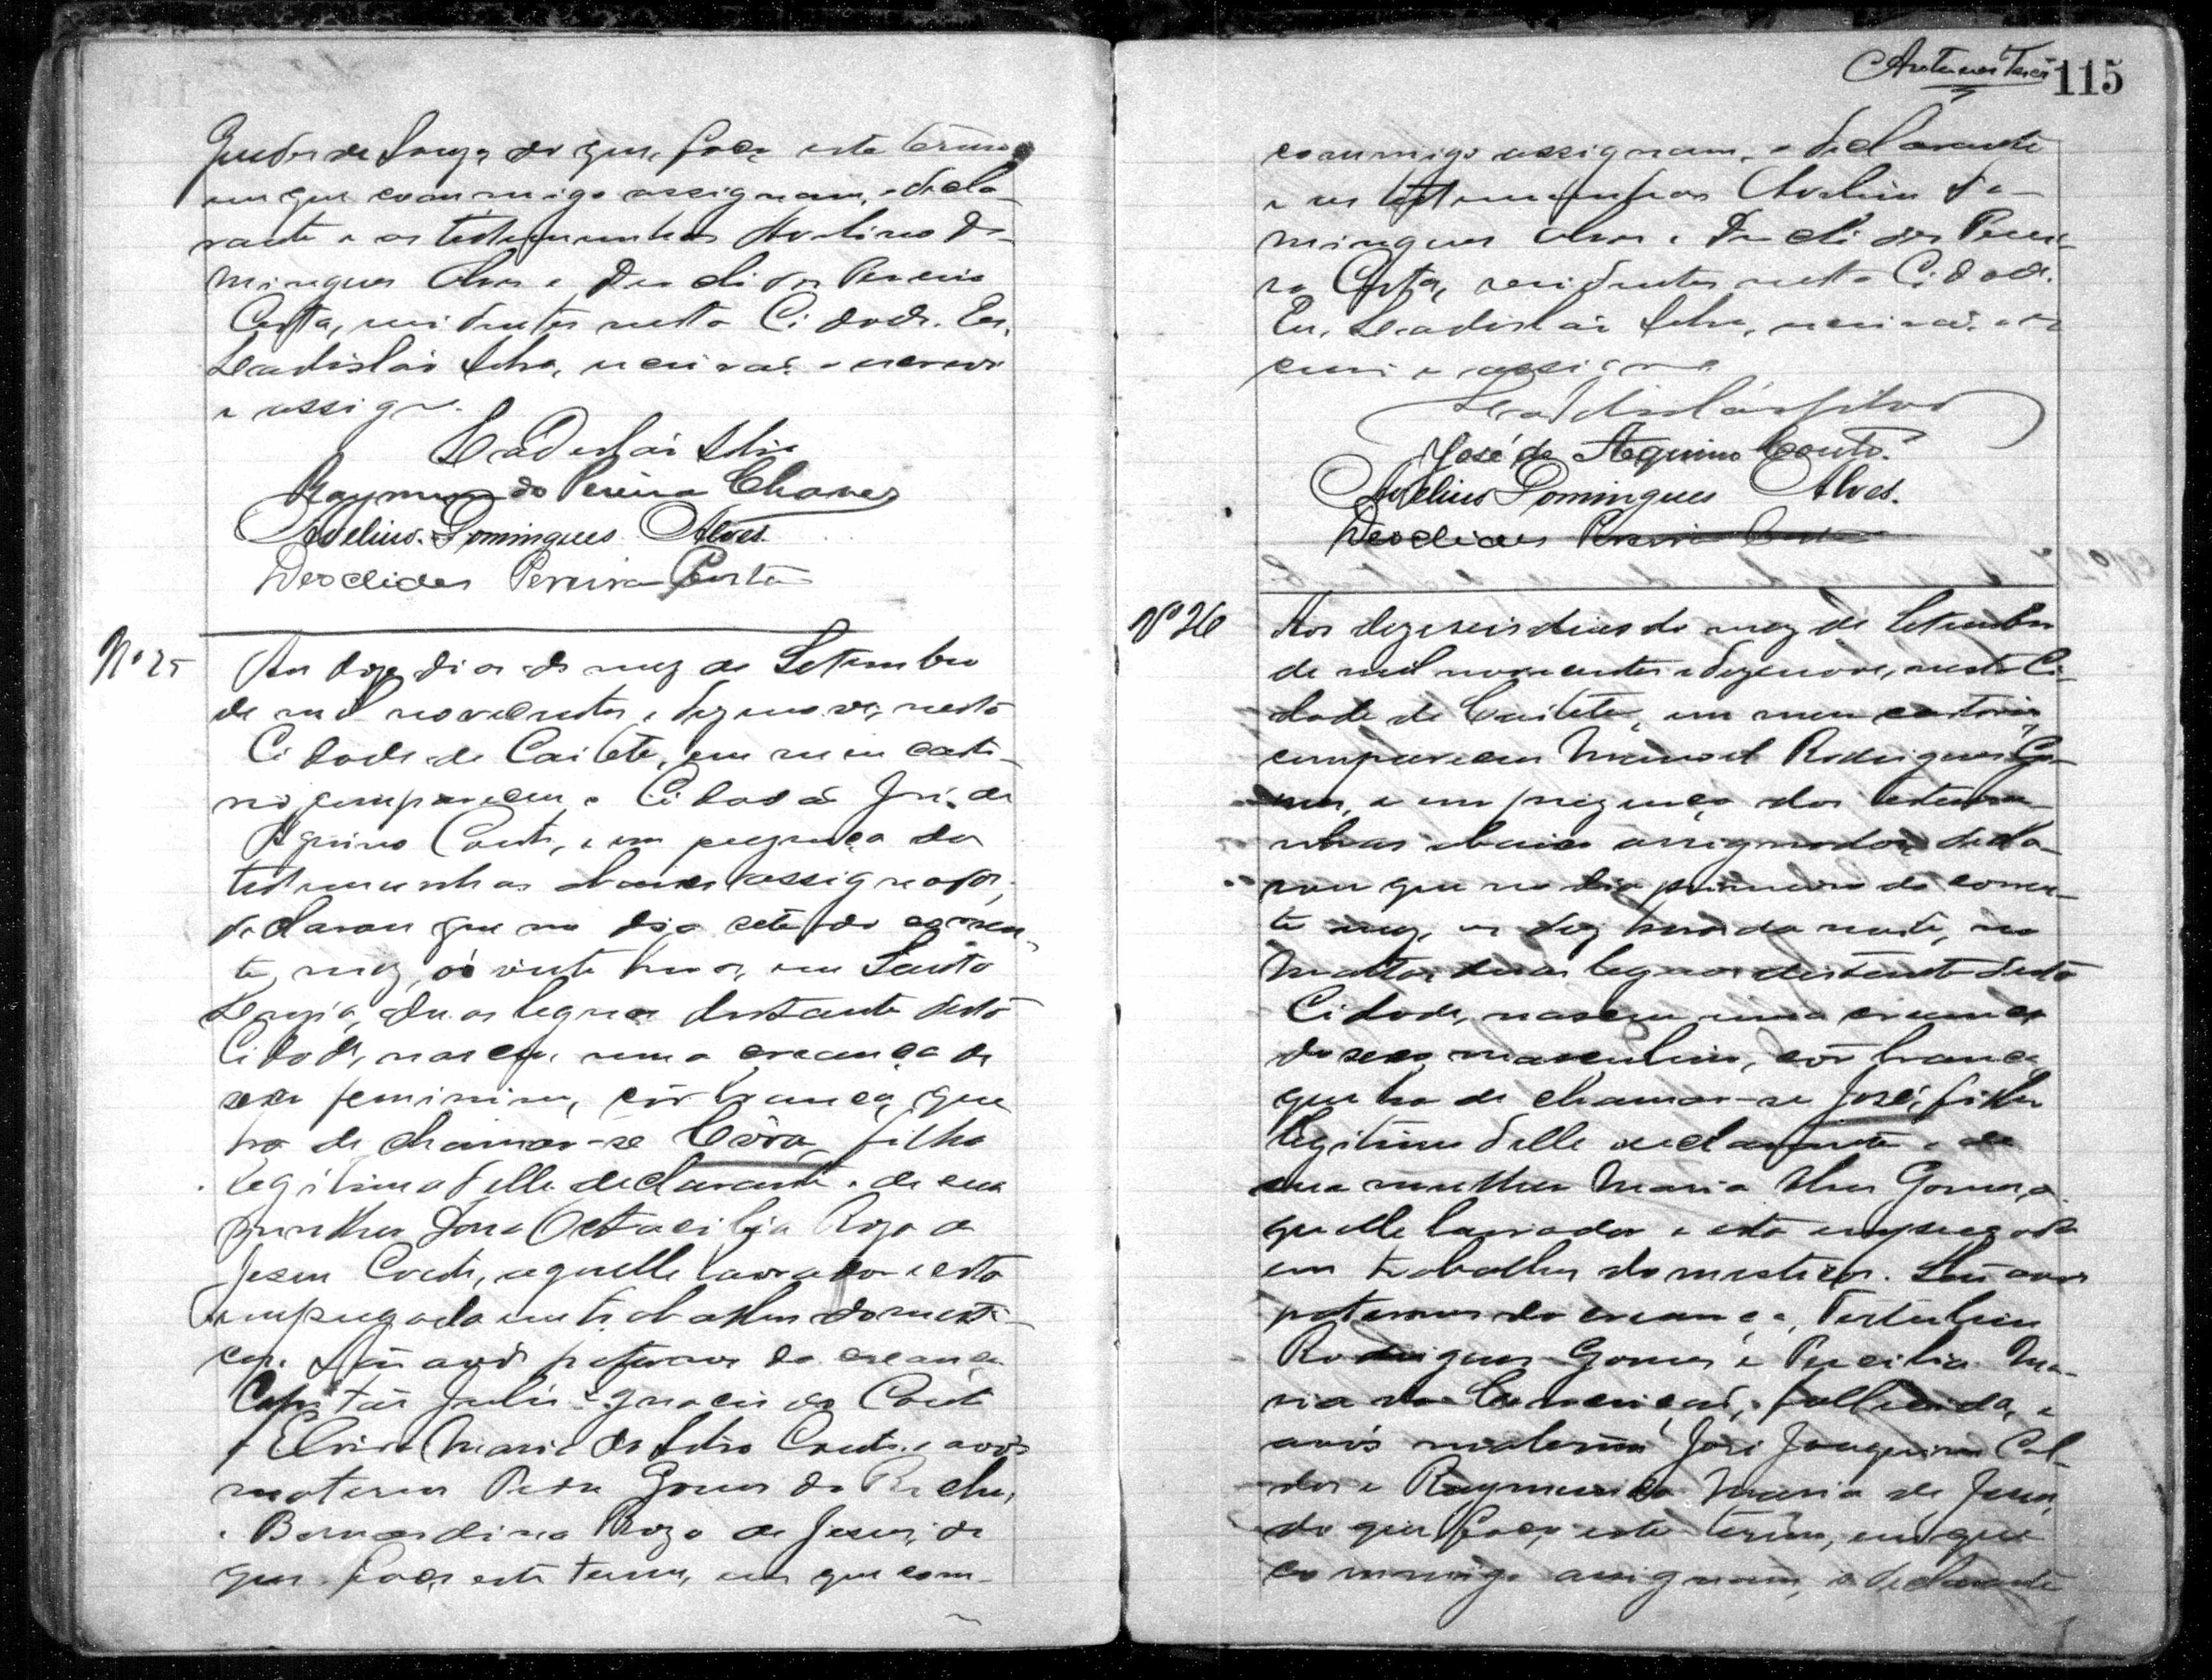 de Souza do que, faço este termo
em que commigo assignam, o decla-
rante e as testemunhas Avelino Do-
mingues Alves e Deoclides Pereira
Costa, residentes nesta Cidade. Eu,
Ladisláo Silva, escrivão o escrevi
e assigno.
Ladisláo Silva
Raymundo Pereira Chaves
Avelino Domingues Alves.
Deoclides Pereira Costa
Nº 25
Aos doze dias do mez de Setembro
de mil novecentos e dezenove, nesta
Cidade de Caiteté, em meu carto-
rio, compareceu o Cidadão José de
Aquino Couto, e em prezença das
testemunhas abaixo assignadas,
declarou que no dia sete do corren-
te mez, ás vinte horas, em Santa
duas leguas distante desta
Cidade, nasceu uma creança do
sexo feminino, côr branca, que
ha de chamar-se Córa, filha
legitima delle declarante e de sua
mulher Dona Octacilia Roza de
Jesus Couto, aquelle lavrador e esta
empregada em trabalhos domesti-
cos. São avós paternos da creança
Capitão Julio Ignacio do Couto
e Elvira Maria da Silva Couto e avós
maternos Pedro Gomes da Rocha,
e Bernardina Roza de Jesus, do
que faço este termo, em que com-
115
commigo assignam, o declarante
e as testemunhas Avelino Do-
mingues Alves e Deoclides Perei-
ra Costa, residentes nesta Cidade.
Eu, Ladisláo Silva, escrivão o es-
crevi e assigno
Ladisláo Silva
José de Aquino Couto.
Avelino Domingues Alves.
Deoclides Pereira Costa
Nº 26
Aos dezeseis dias do mez de Setembro
de mil novecentos e dezenove, nesta Ci-
dade de Caiteté, em meu cartorio,
compareceu Manoel Rodrigues Go-
mes, e em prezença das testemu-
nhas abaixo assignadas, decla-
rou que no dia primeiro do corren-
te mez, as dez horas da noite, no
Matto, duas leguas distante desta
Cidade, nasceu uma creança
do sexo masculino, côr branca
que ha de chamar-se José, filho
legitimo delle declarante e de
sua mulher Maria Alves Gomes, a-
quelle lavrador e esta empregada
em trabalhos domesticos. São avós
paternos da creança, Tertuliano
Rodrigues Gomes e Precilia Ma-
ria da Conceição, fallecida, e
avós maternos José Joaquim Cal-
das e Raymunda Maria de Jesus,
do que faço este termo, em que
commigo assignam, o declarante